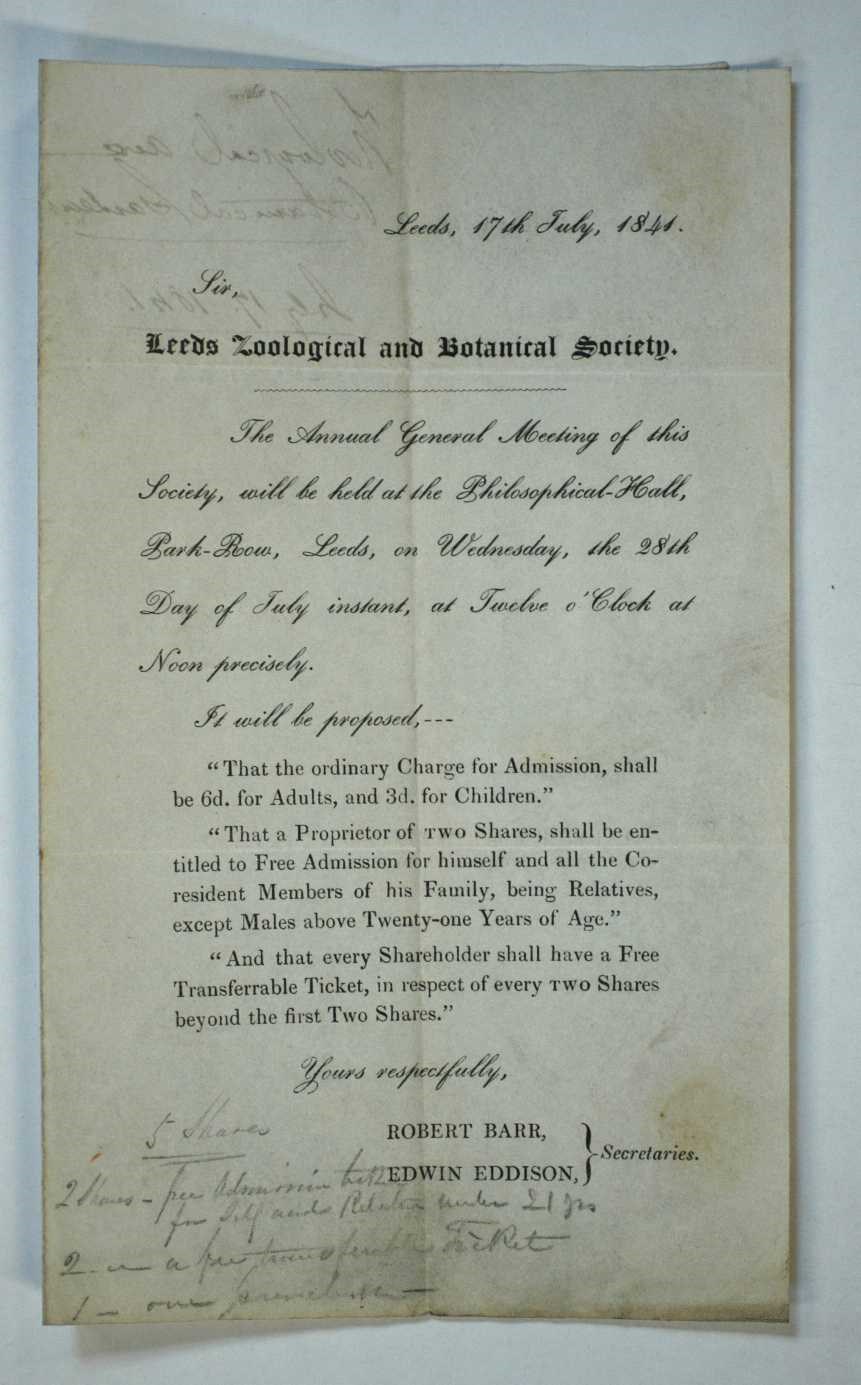 Leeds, 17th July, 1841.
Sir,
Leeds Zoological and Botanical Society.
The Annual General Meeting of this
Society, will be held at the Philosophical-Hall,
Park-Row, Leeds, on Wednesday, the 28th
Day of July instant, at Twelve o'Clock at
Noon precisely.
It will be proposed,---
"That the ordinary Charge for Admission, shall
be 6d. for Adults, and 3d. for Children."
"That a Proprietor of TWO Shares, shall be en-
titled to Free Admission for himself and all the Co-
resident Members of his Family, being Relatives,
except Males above Twenty-one Years of Age."
"And that every Shareholder shall have a Free
Transferrable Ticket, in respect of every TWO Shares
beyond the first Two Shares."
Yours respectfully,
ROBERT BARR,
EDWIN EDDISON,
Secretaries.
5 Shares
2 Shares - free Admission
for Self and Relatives under 21 yrs
2 - a free transferrable Ticket
1 - one